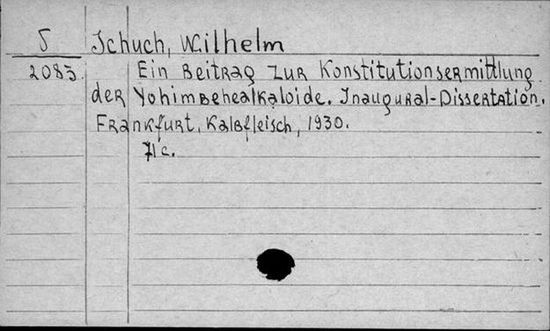 5 Schuch, Wilhelm
2083 Ein Beitrag zur Konstitutionsermittlung
der Yohimbehealkaloide. Inaugural-Dissertation.
Frankfurt, Kalbfleisch, 1930.
71 c.